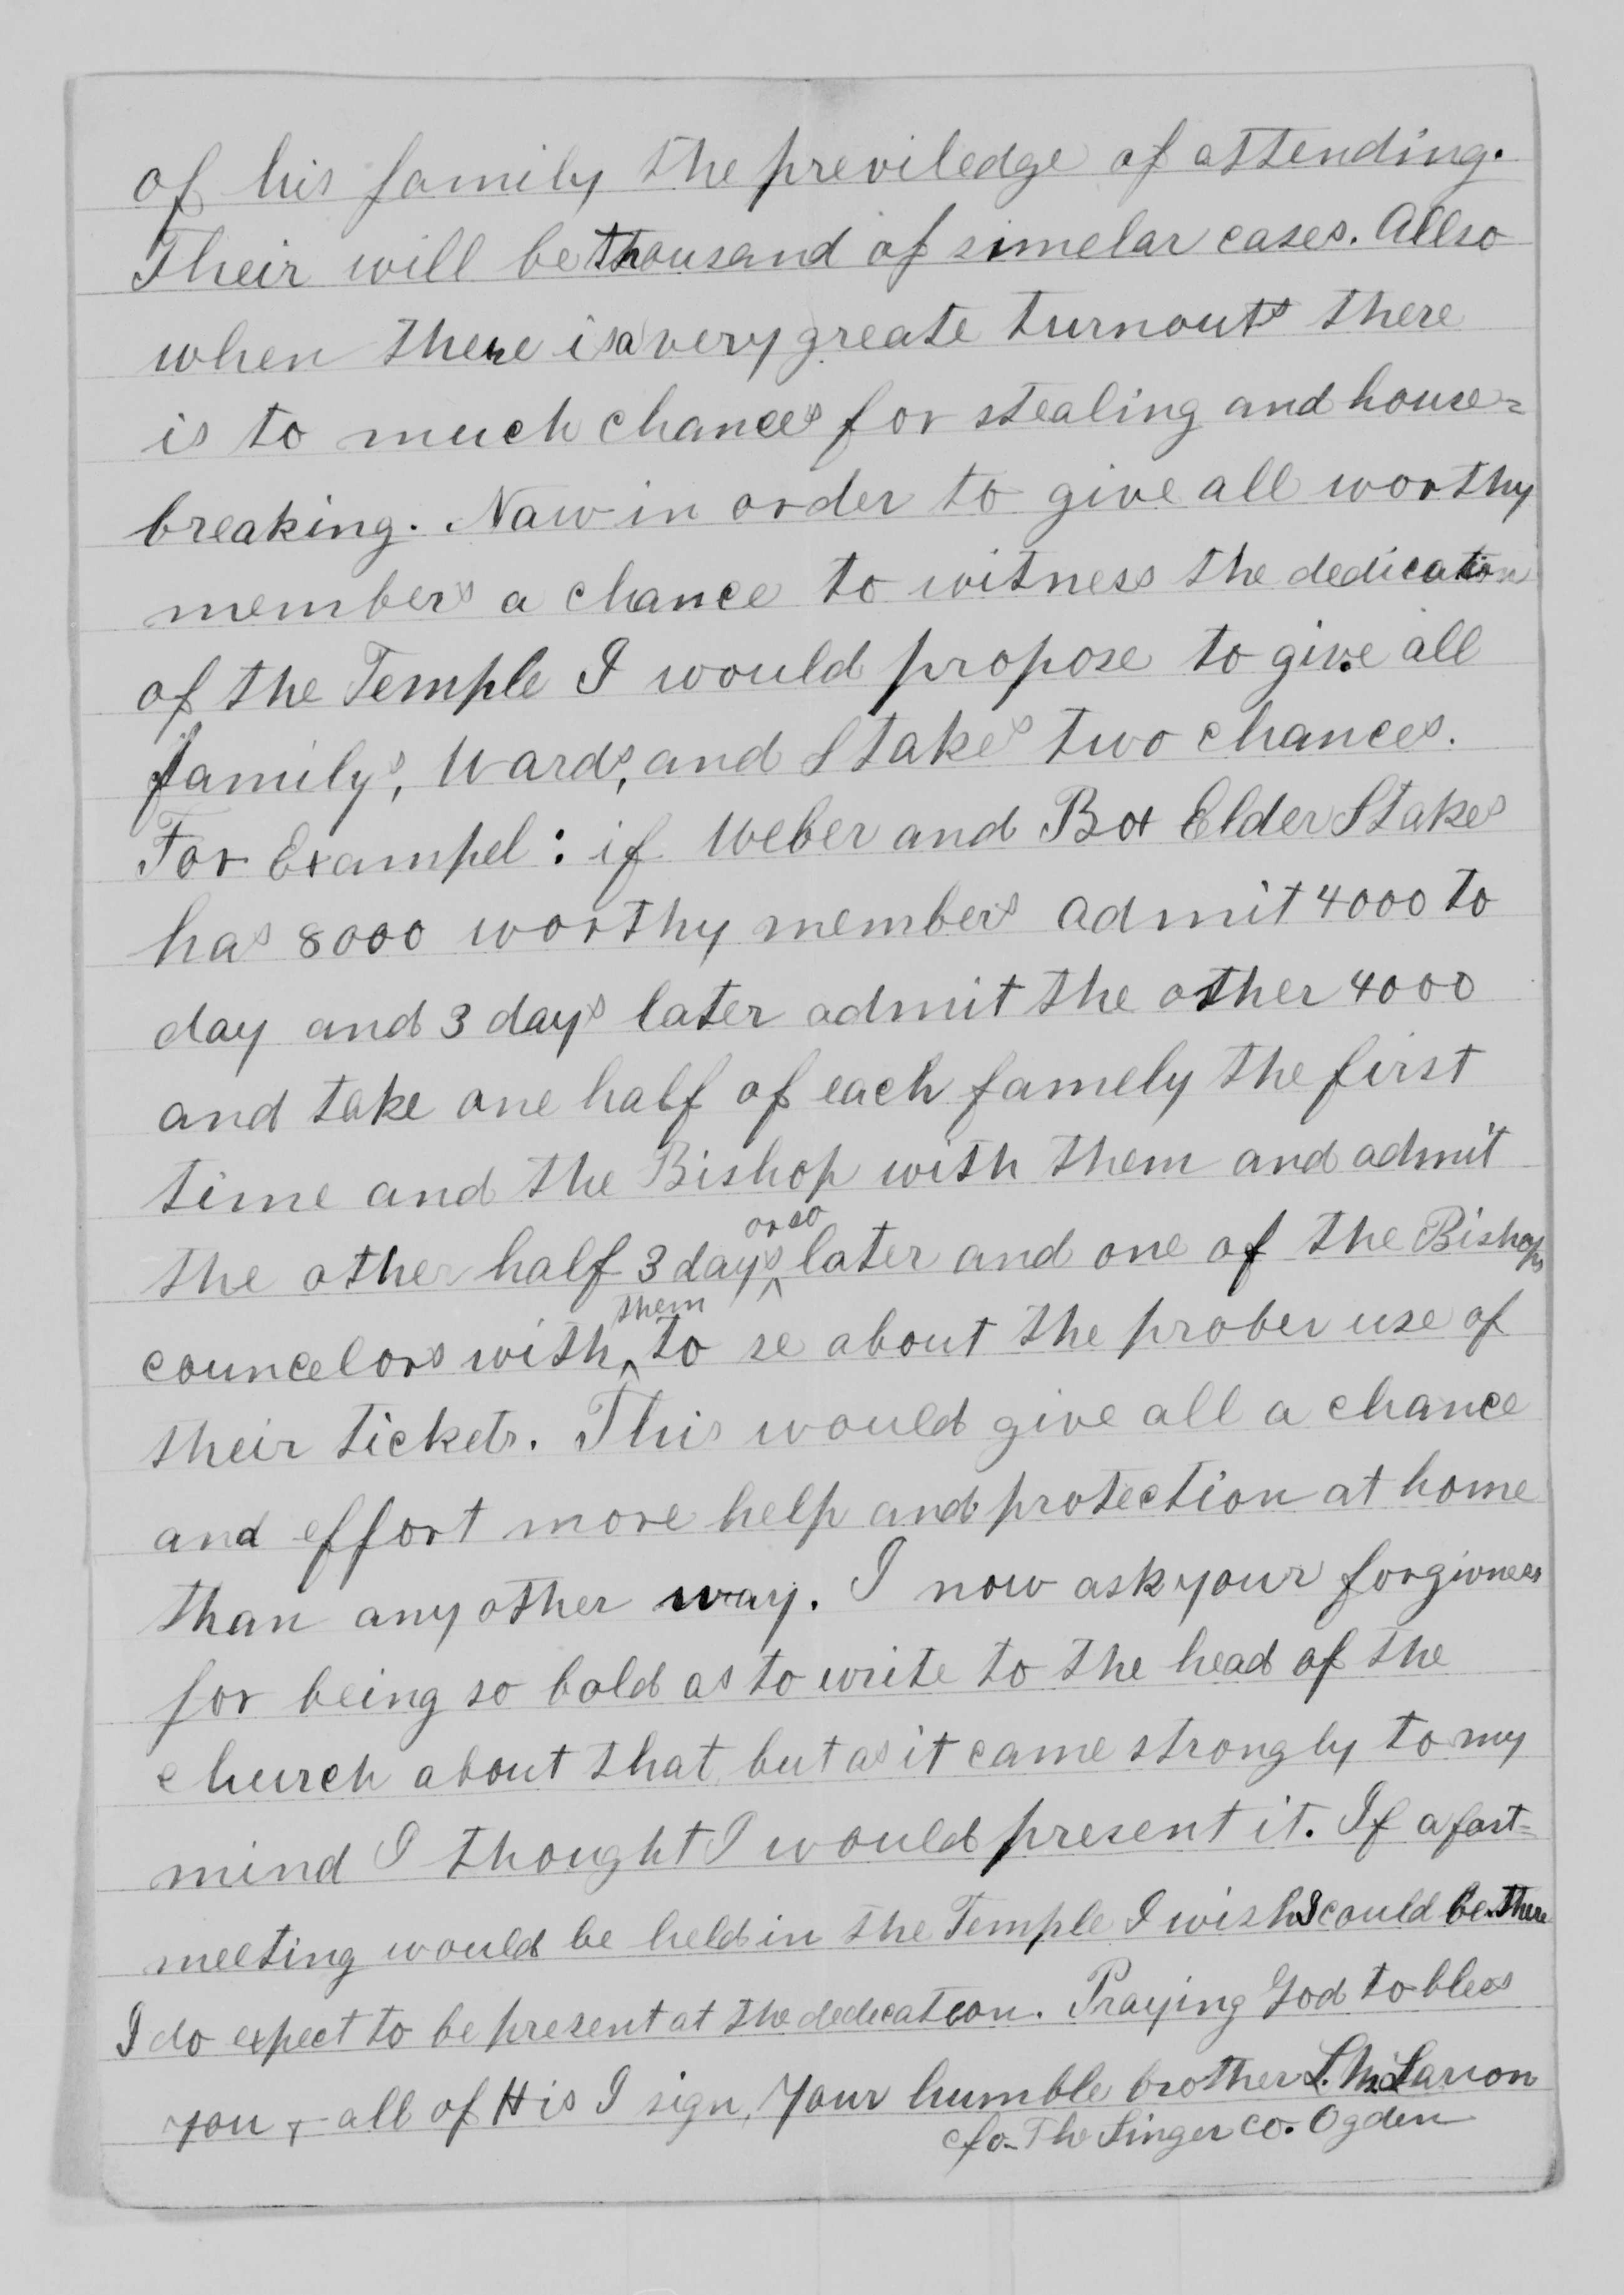 of his family the previledge of attending.
Their will be thousand of simelar cases. Allso
when there is a very greate turnouts there
is to much chances for stealing and house=
breaking. Naw in order to give all worthy
members a chance to witness the dedication
of the Temple I would propose to give all
family's, Wards, and Stakes two chances.
For Exampel: if Weber and Box Elder Stakes
has 8000 worthy members admit 4000 to
day and 3 days later admit the other 4000
and take one half of each famely the first
time and the Bishop with them and admit
or so
the other half 3 days ^ later and one of the Bishops
them
councelors with ^ to se about the prober use of
their tickets. This would give all a chance
and effort more help and protection at home
than any other way. I now ask your forgivness
for being so bold as to write to the head of the
church about that, but as it came strongly to my
mind I thought I would present it. If a fast=
meeting would be held in the Temple I wish I could be there
I do expect to be present at the dedecation. Praying God to bless
you & all of His I sign, Your humble brother L. Larson
c/o The Singer co. Ogden